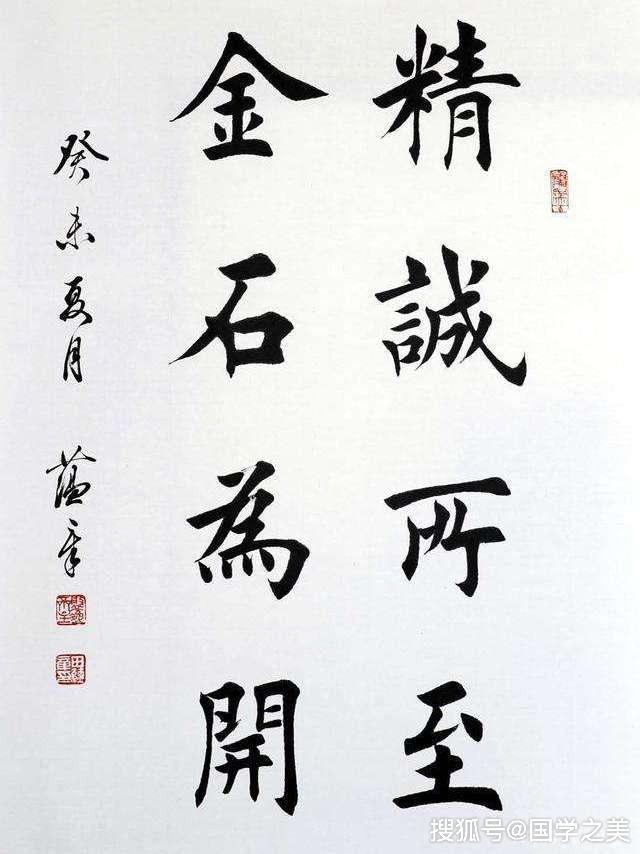 精誠所至
金石為開
癸未夏月 蕴章
搜狐号@国学之美